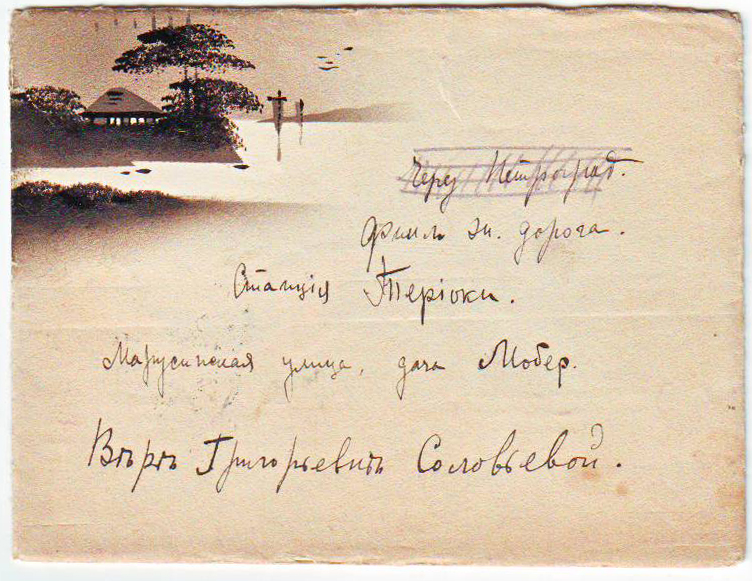 Черезъ Петроградъ.
Финл. ж. дорога.
Станція Теріоки.
Марусинская улица, дача Мобер.
Вѣрѣ Григорьевнѣ Соловьевой.